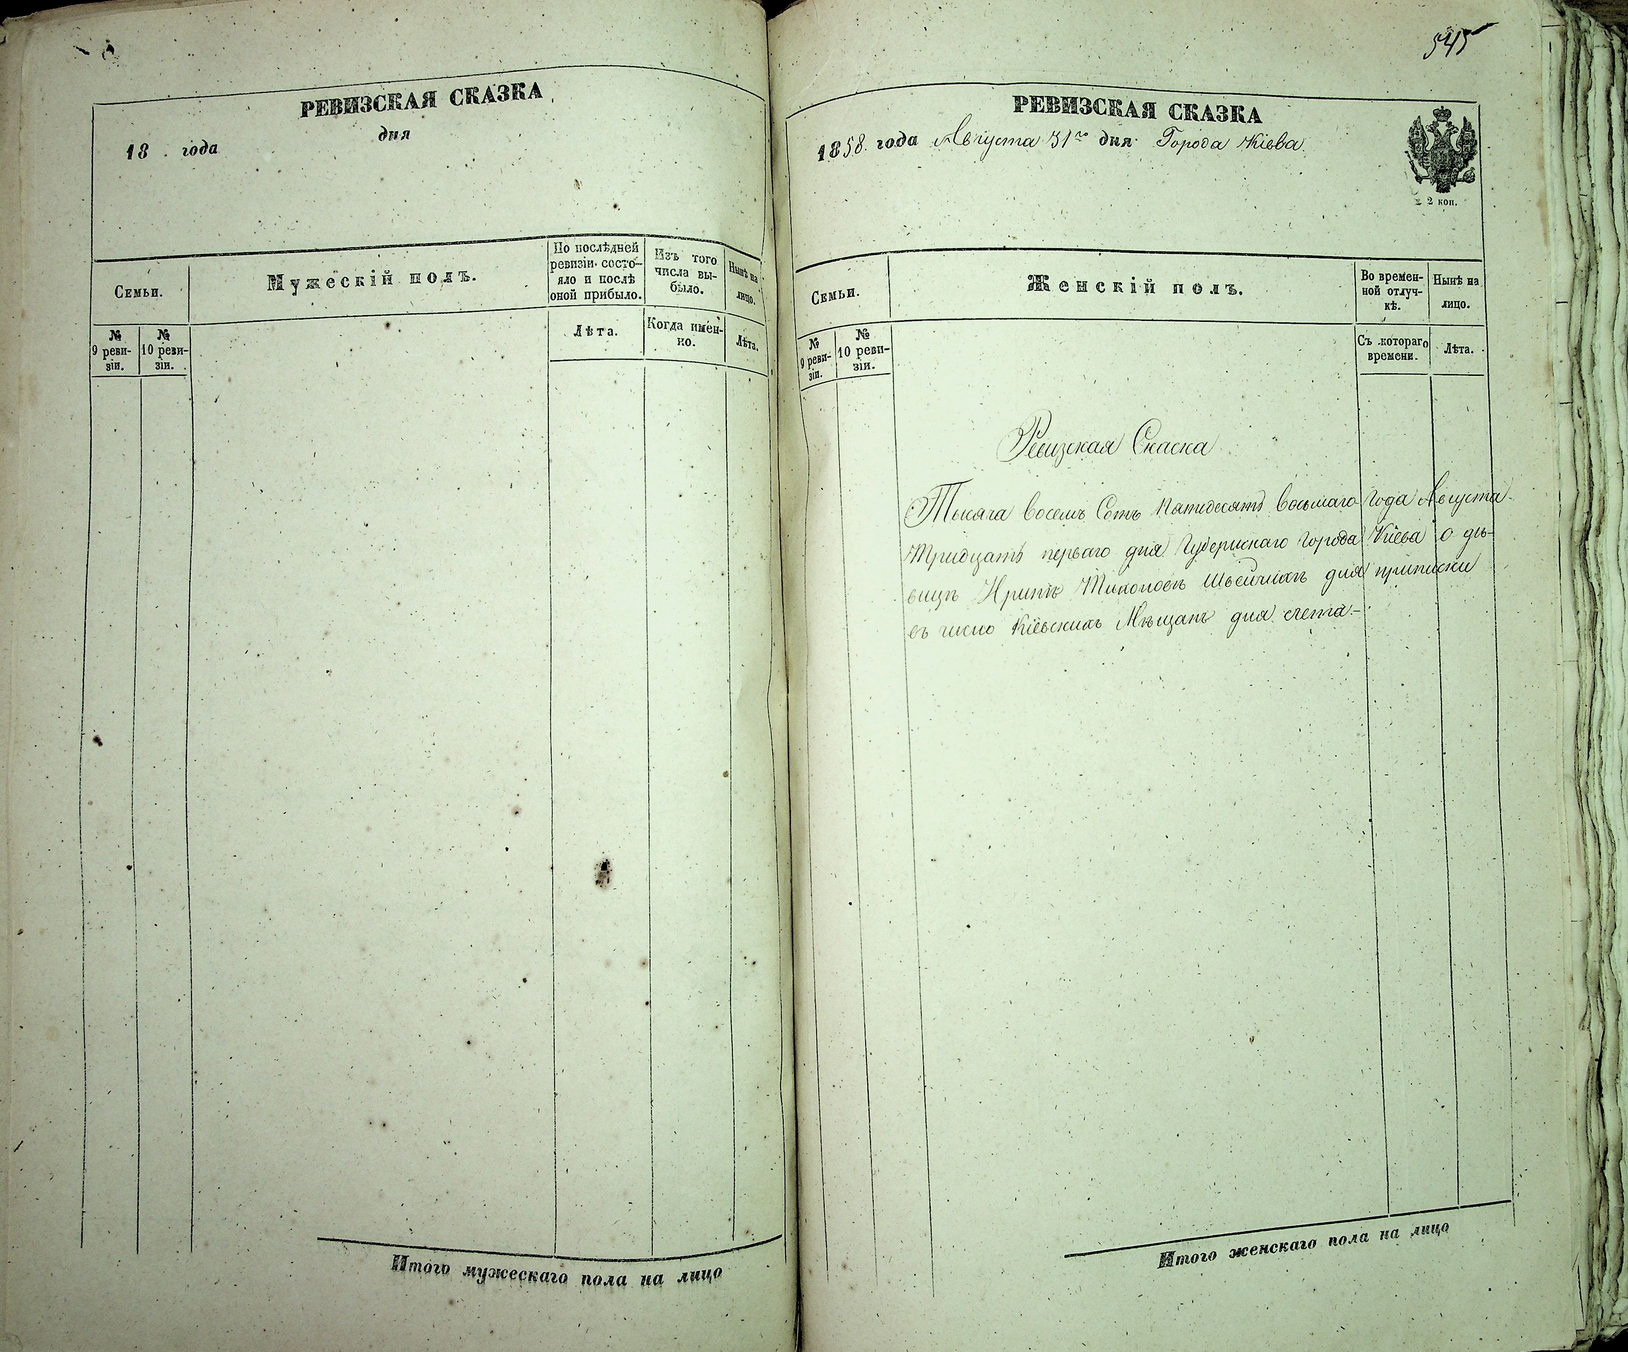 РЕВИЗСКАЯ СКАЗКА
18 года дня
Семьи.
Мужескій полъ.
По послѣдней ревизіи состо-
яло и послѣ оной прибыло.
Изъ того числа вы-
было.
Нынѣ на лицо.
№ 9 реви-
зіи.
№ 10 реви-
зіи.
Лѣта.
Когда имен-
но.
Лѣта.
Итого мужескаго пола на лицо
545
РЕВИЗСКАЯ СКАЗКА
1858 года Августа 31го дня Города Кіева
2 коп.
Семьи.
Женскій полъ.
Во времен-
ной отлуч-
кѣ.
Нынѣ на лицо.
№ 9 реви-
зіи.
№ 10 реви-
зіи.
Съ котораго времени.
Лѣта.
Ревизкая Скаска
Тысяча восемь Сотъ пятидесятъ восьмаго года Августа
тридцать перваго дня Губернскаго города Кіева о дѣ-
вицѣ для приписки
въ число Кіевскихъ Мѣщанъ для счета
Итого женскаго пола на лицо